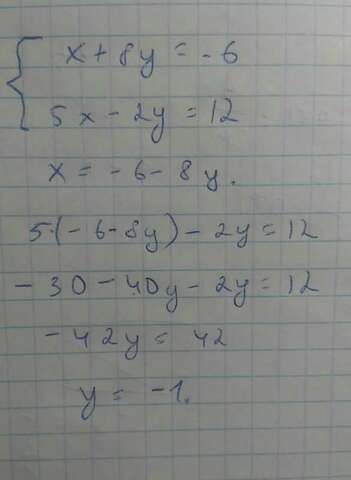 x + 8y = - 6
5x - 2y = 12
x = - 6 - 8y.
5·(- 6 - 8y) - 2y = 12
- 30 - 40y - 2y = 12
- 42y = 42
y = -1.